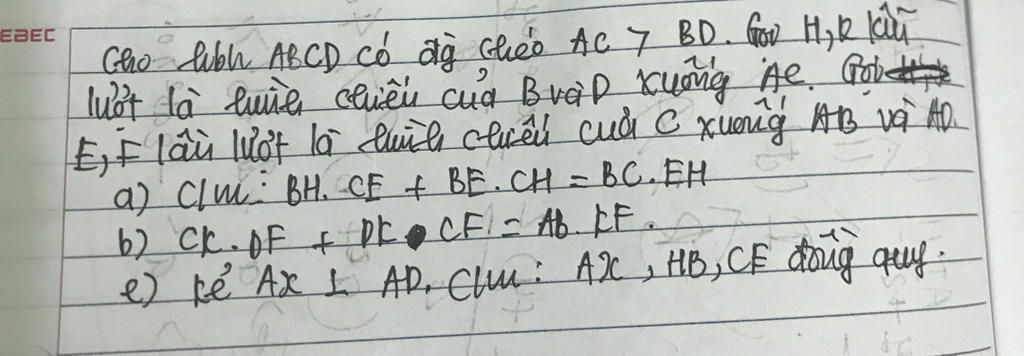 EBEC
Cho hbh ABCD có đg chéo AC > BD. Gọi H, K lần
lượt là hình chiếu của B và D xuống AC. Gọi
E, F lần lượt là hình chiếu của C xuống AB và AD.
a) C/m: BH. CE + BE. CH = BC. EH
b) CK. DF + DK. CF = AB. KF.
c) kẻ Ax ⊥ AD. C/m: Ax, HB, CE đồng quy.